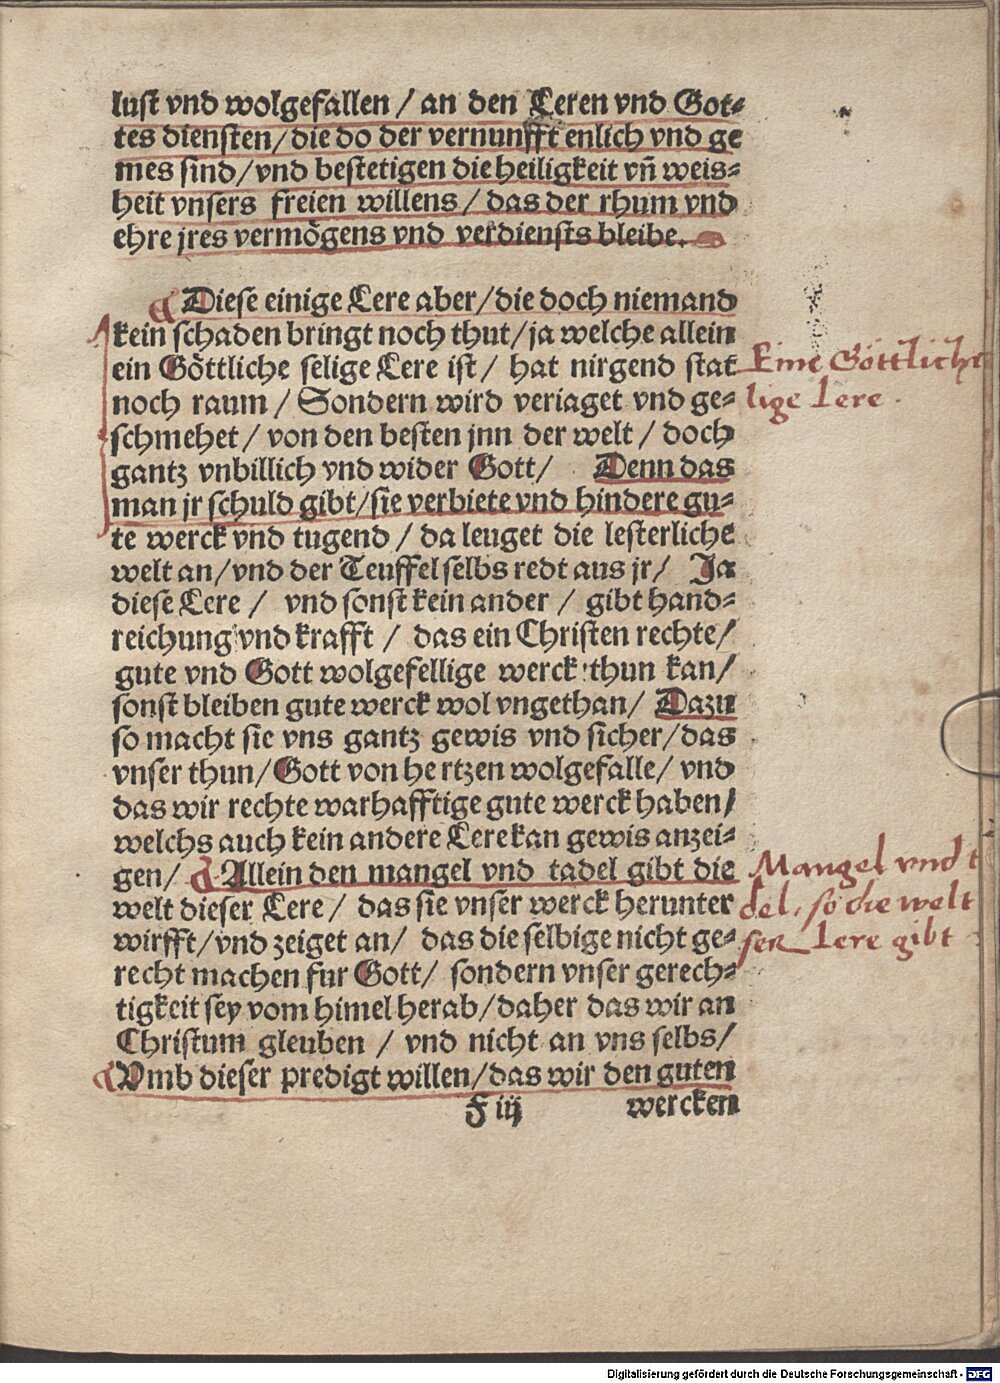 lust vnd wolgefallen / an den Leren vnd Got⸗
tes diensten / die do der vernunfft enlich vnd ge
mes sind / vnd bestetigen die heiligkeit vñ weis⸗
heit vnsers freien willens / das der rhum vnd
ehre jres vermögens vnd verdiensts bleibe.
Diese einige Lere aber / die doch niemand
kein schaden bringt noch thut / ja welche allein
ein Göttliche selige Lere ist / hat nirgend stat
noch raum / Sondern wird veriaget vnd ge⸗
schmehet / von den besten jnn der welt / doch
gantz vnbillich vnd wider Gott / Denn das
man jr schuld gibt / sie verbiete vnd hindere gu⸗
te werck vnd tugend / da leuget die lesterliche
welt an / vnd der Teuffel selbs redt aus jr / Ja
diese Lere / vnd sonst kein ander / gibt hand⸗
reichung vnd krafft / das ein Christen rechte /
gute vnd Gott wolgefellige werck thun kan /
sonst bleiben gute werck wol vngethan / Dazu
so macht sie vns gantz gewis vnd sicher / das
vnser thun / Gott von hertzen wolgefalle / vnd
das wir rechte warhafftige gute werck haben /
welchs auch kein andere Lere kan gewis anzei⸗
gen / Allein den mangel vnd tadel gibt die
welt dieser Lere / das sie vnser werck herunter
wirfft / vnd zeiget an / das die selbige nicht ge⸗
recht machen fur Gott / sondern vnser gerech⸗
tigkeit sey vom himel herab / daher das wir an
Christum gleuben / vnd nicht an vns selbs /
Vmb dieser predigt willen / das wir den guten
F iij wercken
Eine Göttliche
lige Lere.
Mangel vnd t
del, so die welt
ser Lere gibt
Digitalisierung gefördert durch die Deutsche Forschungsgemeinschaft - DFG